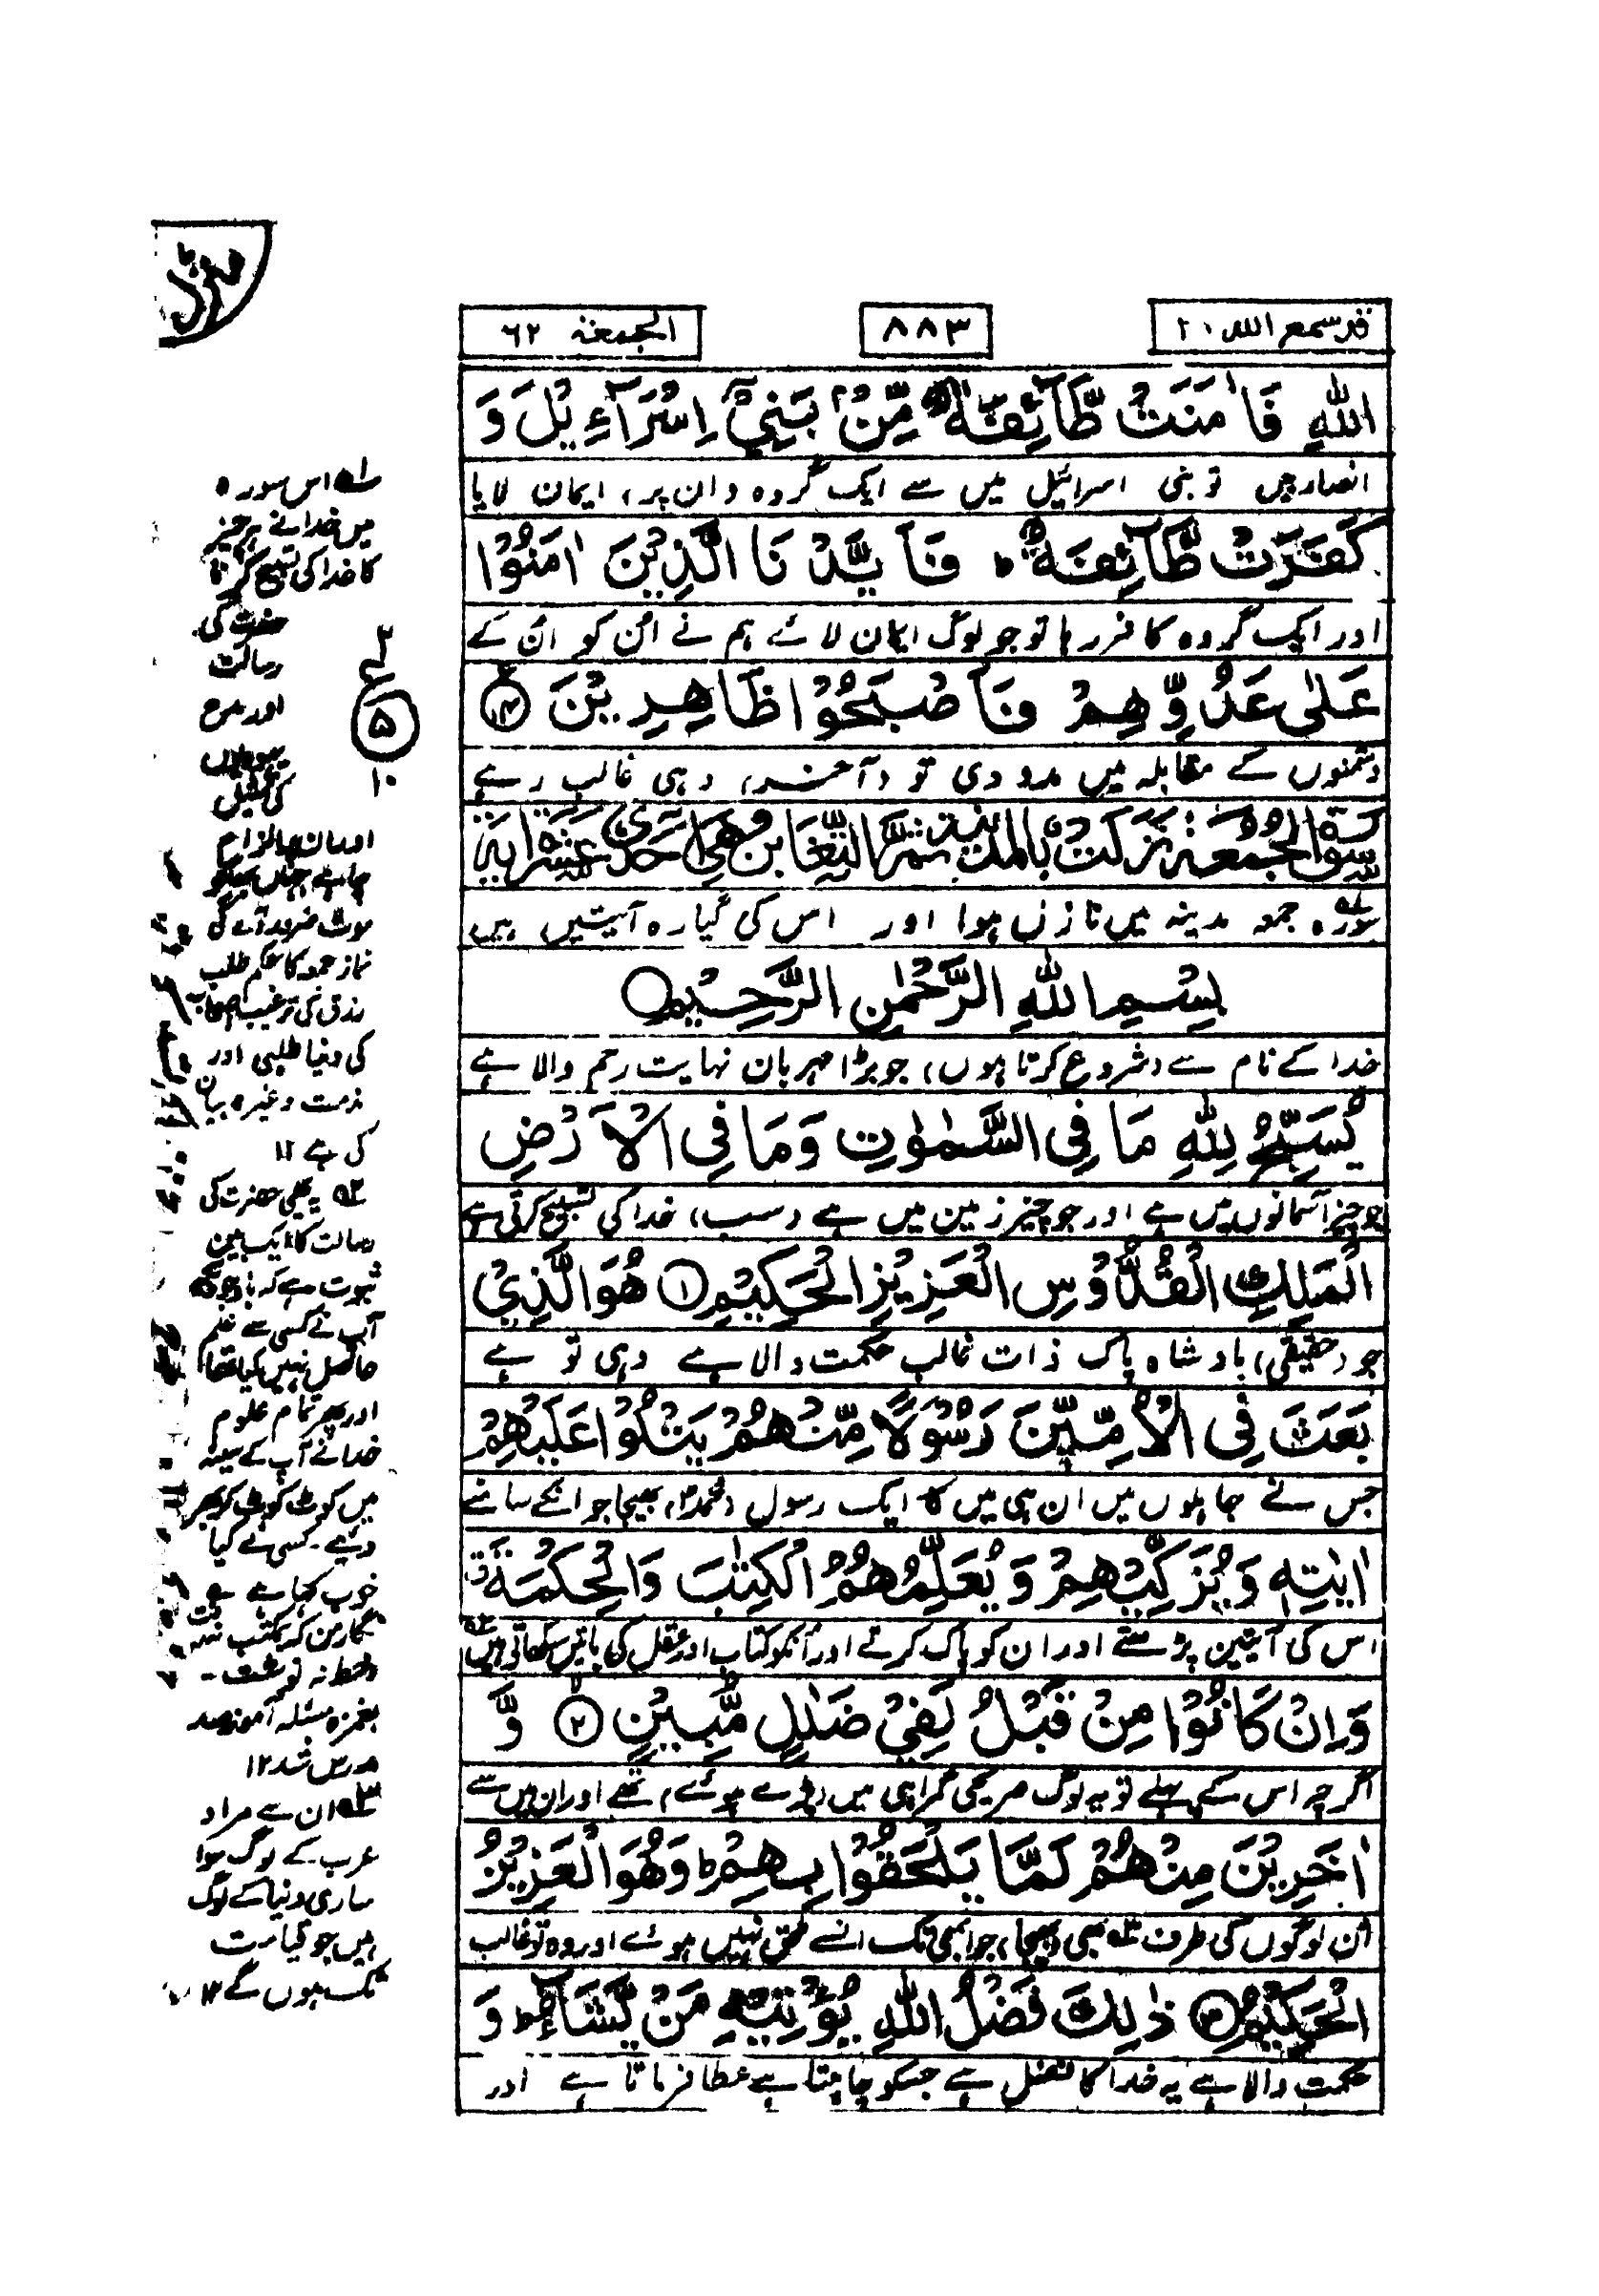 قد سمع الله ۲۸
۸۸۳
الجمعة ۶۲
اللهِ فَاٰمَنَتْ طَّآئِفَةٌ مِّنْۢ بَنِیْۤ اِسْرَآءِیْلَ وَ
انصار ہیں تو بنی اسرائیل میں سے ایک گروہ (ان پر) ایمان لایا
كَفَرَتْ طَّآئِفَةٌ ۚ فَاَیَّدْنَا الَّذِیْنَ اٰمَنُوْا
اور ایک گروہ کافر رہا تو جو لوگ ایمان لائے ہم نے ان کو ان کے
عَلٰی عَدُوِّهِمْ فَاَصْبَحُوْا ظَاهِرِیْنَ ۱۴
دشمنوں کے مقابلہ میں مدد دی تو (آخر) وہی غالب رہے
سورة الجمعة نزلت بالمدینة ثم التغابن وهی احدی عشرة ایة
سورہ جمعہ مدینہ میں نازل ہوا اور اس کی گیارہ آیتیں ہیں
بِسْمِ اللهِ الرَّحْمٰنِ الرَّحِیْمِ
خدا کے نام سے (شروع کرتا ہوں) جو بڑا مہربان نہایت رحم والا ہے
یُسَبِّحُ لِلّٰهِ مَا فِی السَّمٰوٰتِ وَمَا فِی الْاَرْضِ
جو چیز آسمانوں میں ہے اور جو چیز زمین میں ہے (سب) خدا کی تسبیح کرتی ہے
الْمَلِكِ الْقُدُّوْسِ الْعَزِیْزِ الْحَكِیْمِ ۱ هُوَ الَّذِیْ
جو (حقیقی) بادشاہ پاک ذات غالب حکمت والا ہے وہی تو ہے
بَعَثَ فِی الْاُمِّیّٖنَ رَسُوْلًا مِّنْهُمْ یَتْلُوْا عَلَیْهِمْ
جس نے جاہلوں میں ان ہی میں کا ایک رسول (محمدؐ) بھیجا جو انکے سامنے
اٰیٰتِهٖ وَیُزَكِّیْهِمْ وَیُعَلِّمُهُمُ الْكِتٰبَ وَالْحِكْمَةَ ۗ
اس کی آیتیں پڑھتے اور ان کو پاک کرتے اور انکو کتاب اور عقل کی باتیں سکھاتے ہیں ۲؎
وَاِنْ كَانُوْا مِنْ قَبْلُ لَفِیْ ضَلٰلٍ مُّبِیْنٍ ۲ وَّ
اگرچہ اس کے پہلے تو یہ لوگ صریحی گمراہی میں (پڑے ہوئے) تھے اور ان میں سے
اٰخَرِیْنَ مِنْهُمْ لَمَّا یَلْحَقُوْا بِهِمْ ؕ وَهُوَ الْعَزِیْزُ
ان لوگوں کی طرف ۳؎ بھی (بھیجا) جو ابھی تک انسے ملحق نہیں ہوئے اور وہ تو غالب
الْحَكِیْمُ ۳ ذٰلِكَ فَضْلُ اللهِ یُؤْتِیْهِ مَنْ یَّشَآءُ ؕ وَ
حکمت والا ہے یہ خدا کا فضل ہے جسکو چاہتا ہے عطا فرماتا ہے اور
۲
ع
۵
۱۰
۱؎ اس سورہ
میں خدا نے ہر چیز
کا خدا کی تسبیح کرنا
حضرت کی
رسالت
اور مدح
یہودیوں
کی تمثیل
اور ان پر الزام
موت ضرور آئے گی
نماز جمعہ کا حکم طلب
رزق کی ترغیب اصحاب
کی دنیا طلبی اور
مذمت وغیرہ بیان
کی ہے ۱۲
۲؎ یہ بھی حضرت کی
رسالت کا ایک بین
ثبوت ہے کہ باوجودیکہ
آپ نے کسی سے علم
حاصل نہیں کیا تھا
اور پھر تمام علوم
خدا نے آپ کے سینہ
میں کوٹ کوٹ کر بھر
دیئے۔ کسی نے کیا
خوب کہا ہے
نگار من کہ بمکتب نرفت
و خط نہ نوشت ۔
بغمزہ مسئلہ آموز صد
مدرس شد ۱۲
۳؎ ان سے مراد
عرب کے لوگ سوا
ساری دنیا کے لوگ
ہیں جو قیامت
تک ہوں گے ۱۲